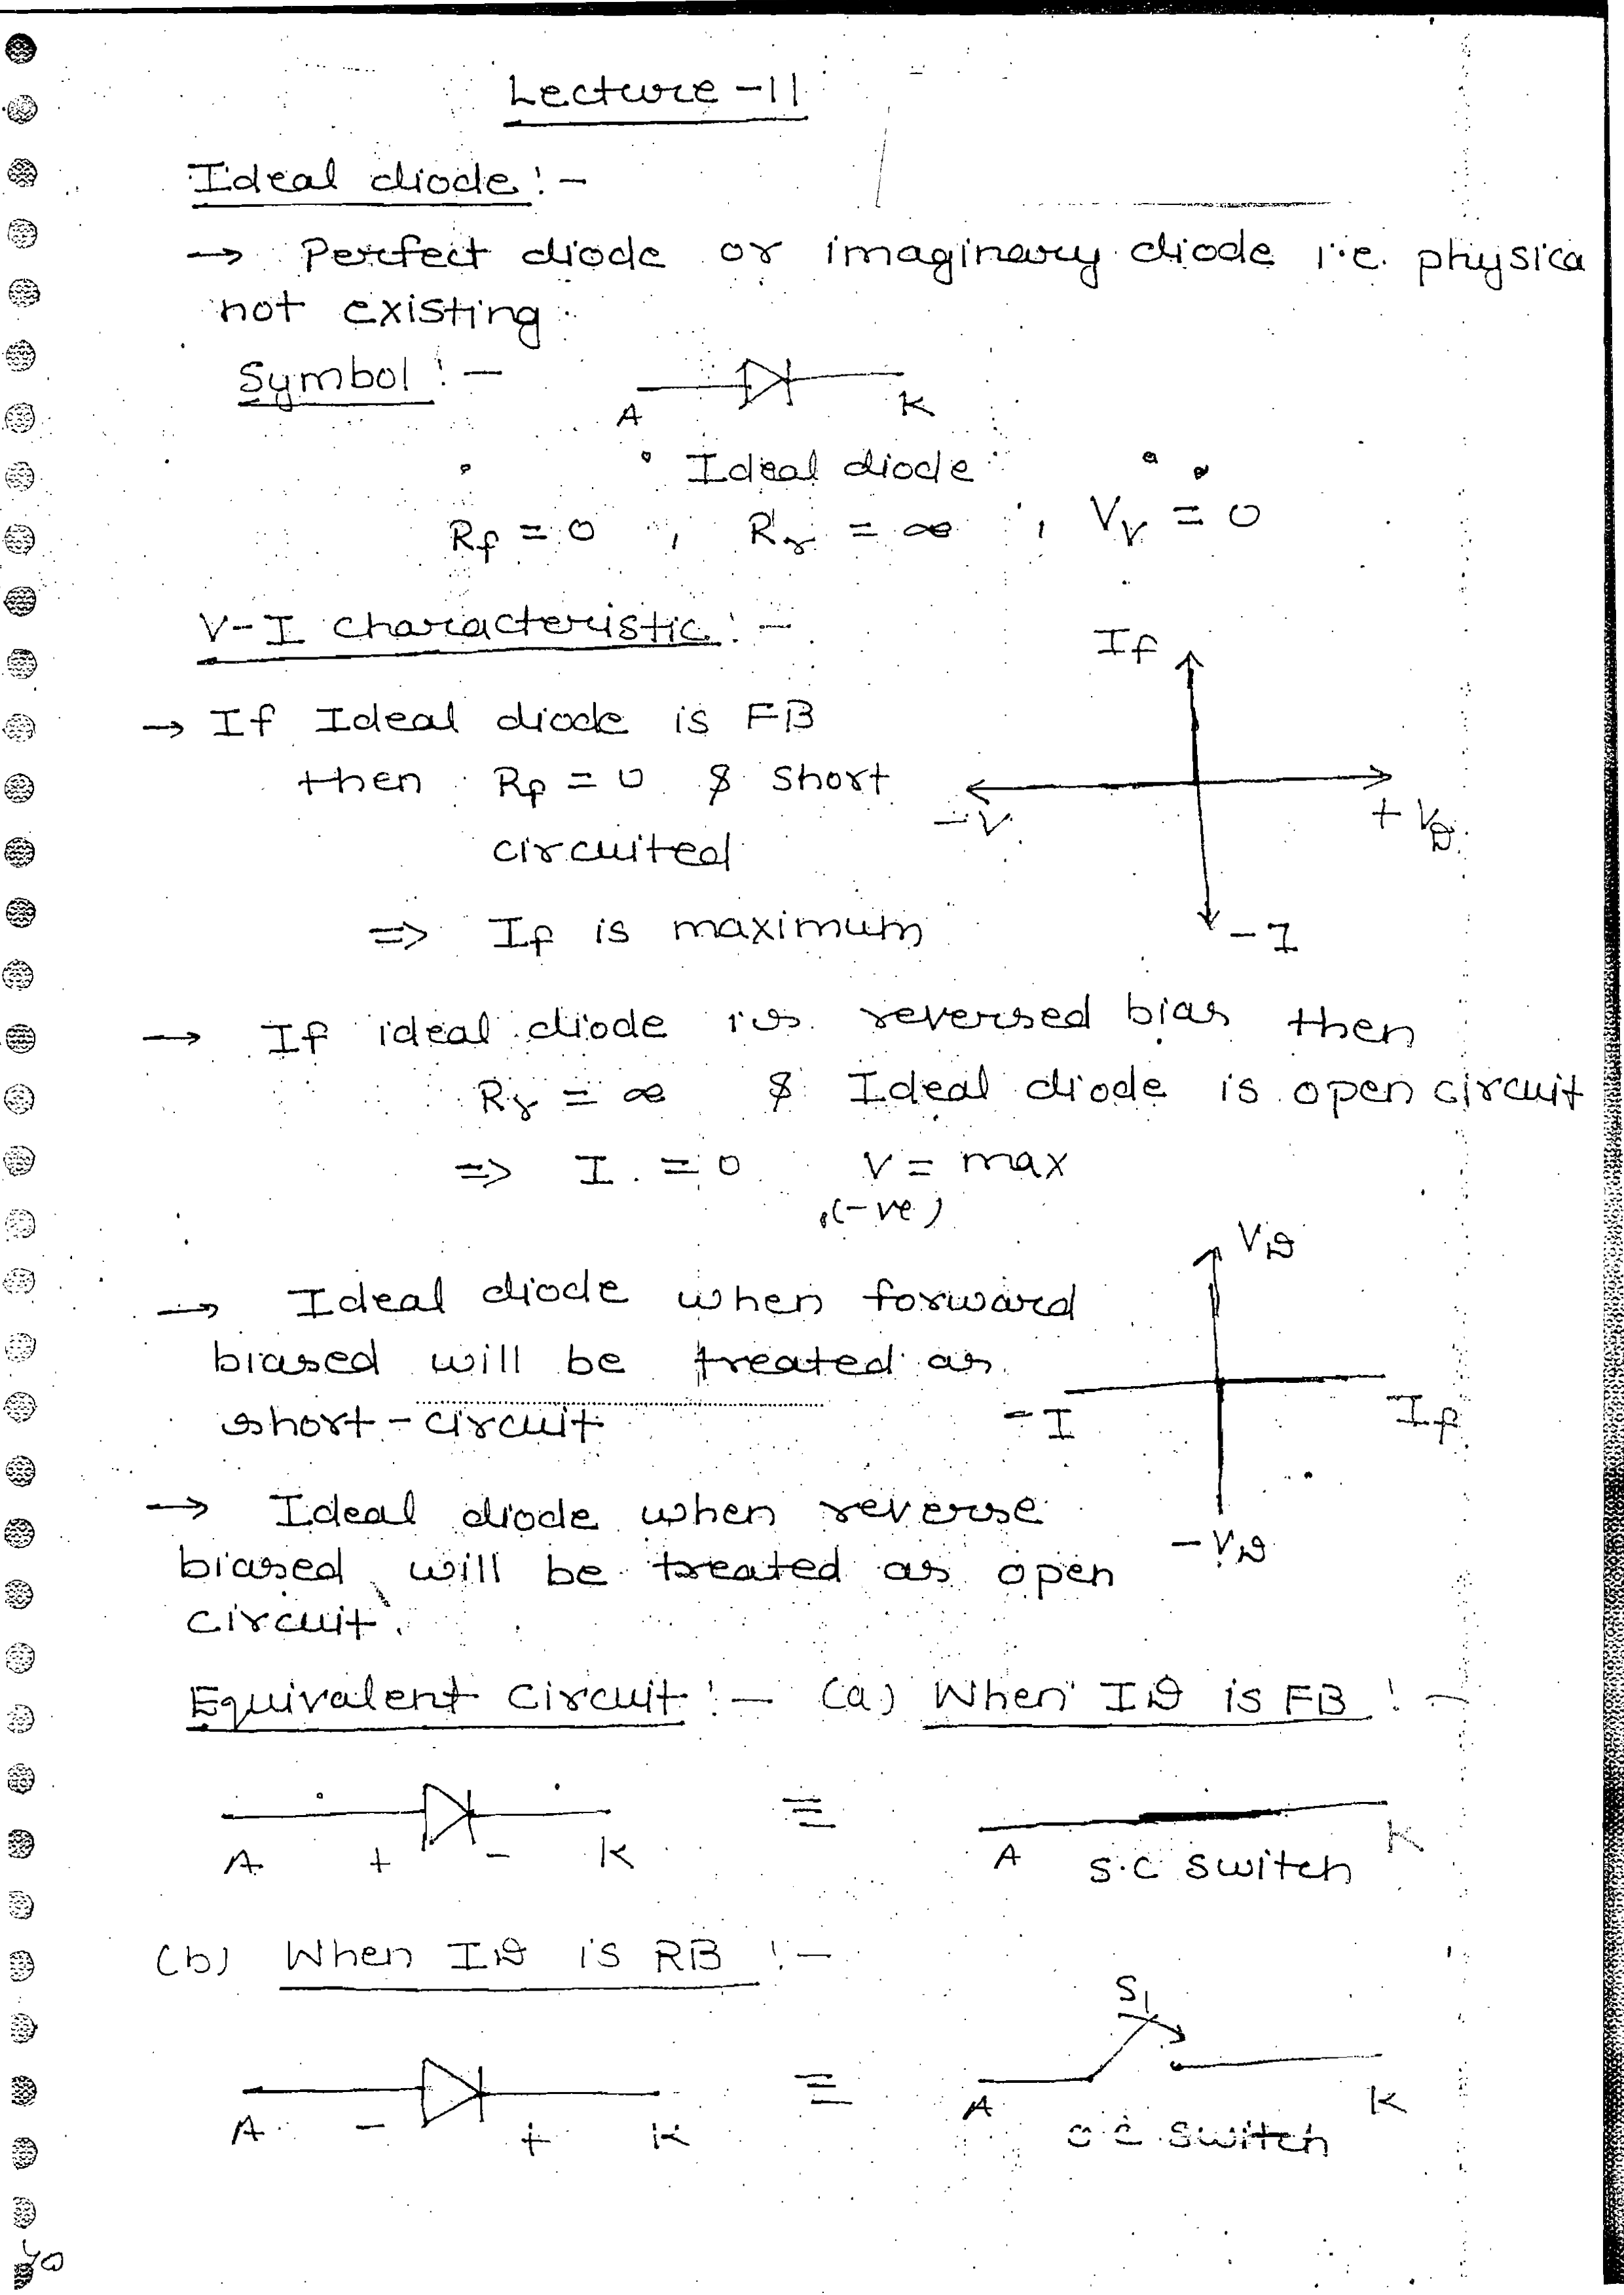 Lecture -11
Ideal diode :-
→ Perfect diode or imaginary diode i.e. physica
not existing.
Symbol :-
A K
Ideal diode
Rf = 0 , Rr = ∞ , Vγ = 0
V-I characteristic :-
If
→ If Ideal diode is FB
then Rf = 0 & short
-V + VD
circuited
⇒ If is maximum
-I
→ If ideal diode is reversed bias then
Rr = ∞ & Ideal diode is open circuit
⇒ I = 0 V = max
(-ve)
VD
→ Ideal diode when forward
biased will be treated as
short-circuit
-I If
→ Ideal diode when reverse
-VD
biased will be treated as open
circuit.
Equivalent Circuit :- (a) When ID is FB :-
A + - K ≡ A K
S.C switch
(b) When ID is RB :-
S1
A - + K ≡ A K
O.C switch
40